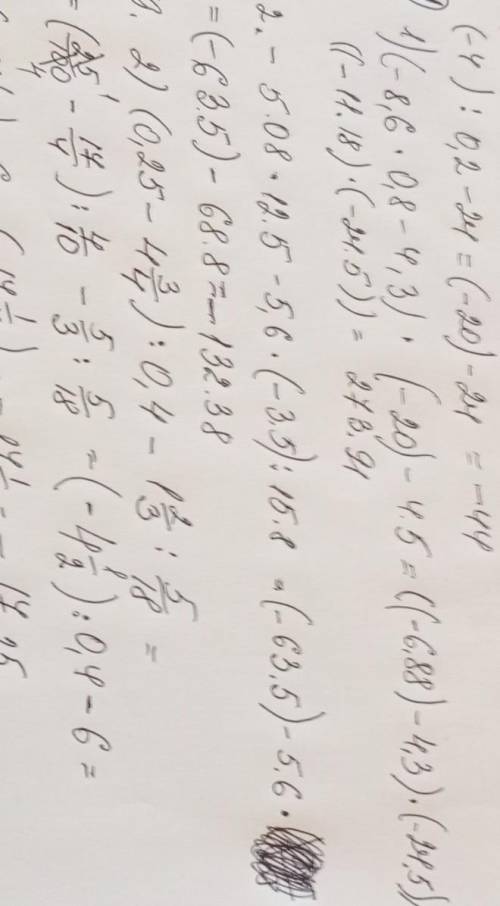 (-4) : 0,2 - 24 = (-20) - 24 = -44
1) (-8,6 · 0,8 - 4,3) · (-20) - 4.5 = ((-6.88) - 4,3) · (-24,5)
((-11.18) · (-24,5)) = 273.91
2. - 5.08 · 12.5 - 5,6 · (-3,5) : 15.8 = (-63,5) - 5.6 ·
= (-63.5) - 68.8 = -132.38
2) (0,25 - 4 3/4) : 0,4 - 1 2/3 : 5/18 =
= - 14/4) : 4/10 - 5/3 : 5/18 = (-4 1/2) : 0,4 - 6 =